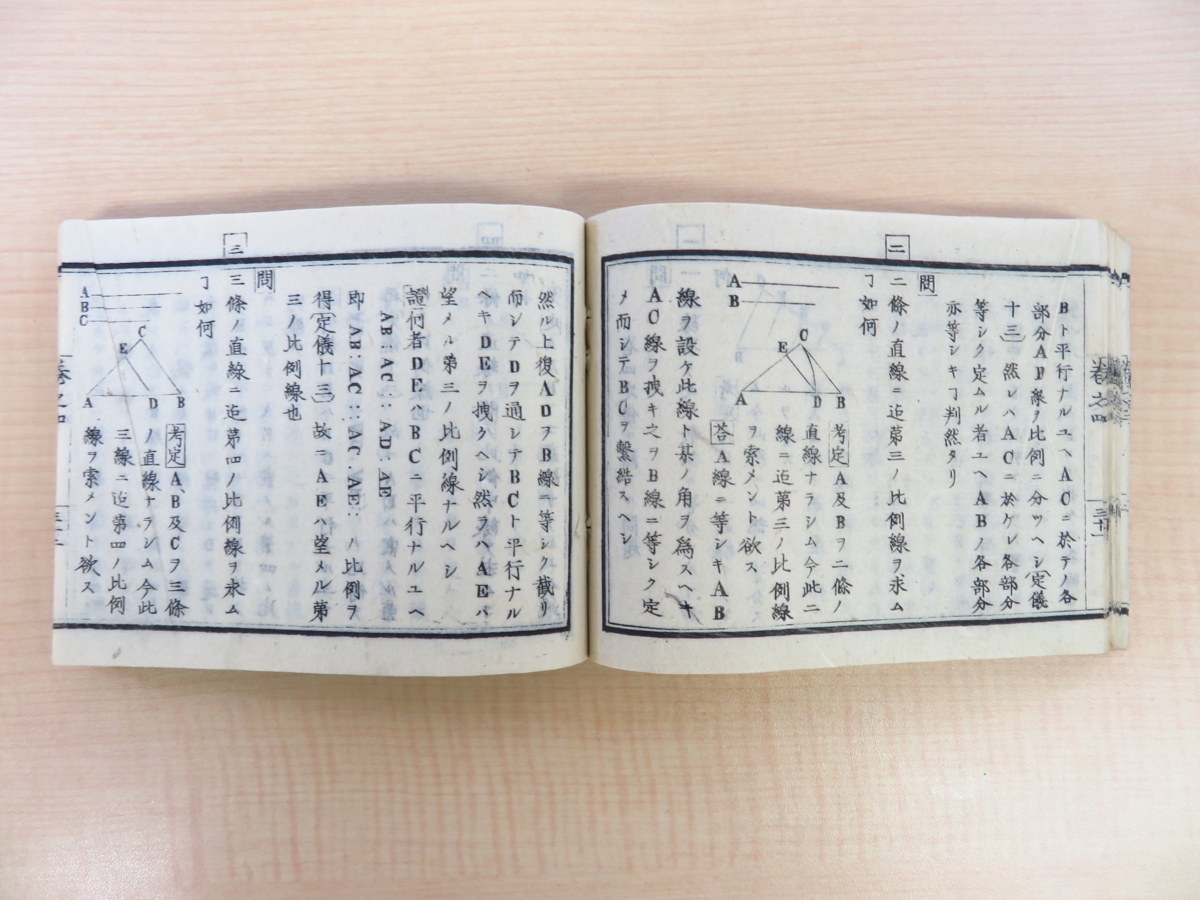 Bト平行ナルユヘACニ於テノ各
部分AF線ヲ比例ニ分ツヘシ定儀
十三然レハACニ於ケレ各部分
等シク定ムル者ユヘABノ各部分
亦等シキヿ判然タリ
二
問
二條ノ直線ニ迠第三ノ比例線ヲ求ム
ヿ如何
A
B
C
E
A
D
B
考定A及Bヲ二條ノ
直線ナラシム今此二
線ニ迠第三ノ比例線
ヲ索メント欲ス
答A線ニ等シキAB
線ヲ設ケ此線ト某ノ角ヲ為スヘキ
AC線ヲ拽キ之ヲB線ニ等シク定
メ而シテBCヲ繫結スヘシ
然ル上復ADヲB線ニ等シク截リ
而シテDヲ通シテBCト平行ナル
ヘキDEヲ拽クヘシ然ヲハAEハ
望メル第三ノ比例線ナルヘシ
證何者DEハBCニ平行ナルユヘ
AB:AC::AD:AE
即AB:AC::AC:AE:ハ比例ヲ
得定儀十三故ニAEハ望メル第
三ノ比例線也
三
問
三條ノ直線ニ迠第四ノ比例線ヲ求ム
ヿ如何
A
B
C
C
E
A
D
B
考定A、B及Cヲ三條
ノ直線ナラシム今此
三線ニ迠第四ノ比例
線ヲ索メント欲ス
卷之四
三十一